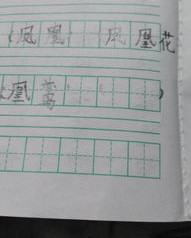 （凤凰 凤凰花
凰 ）